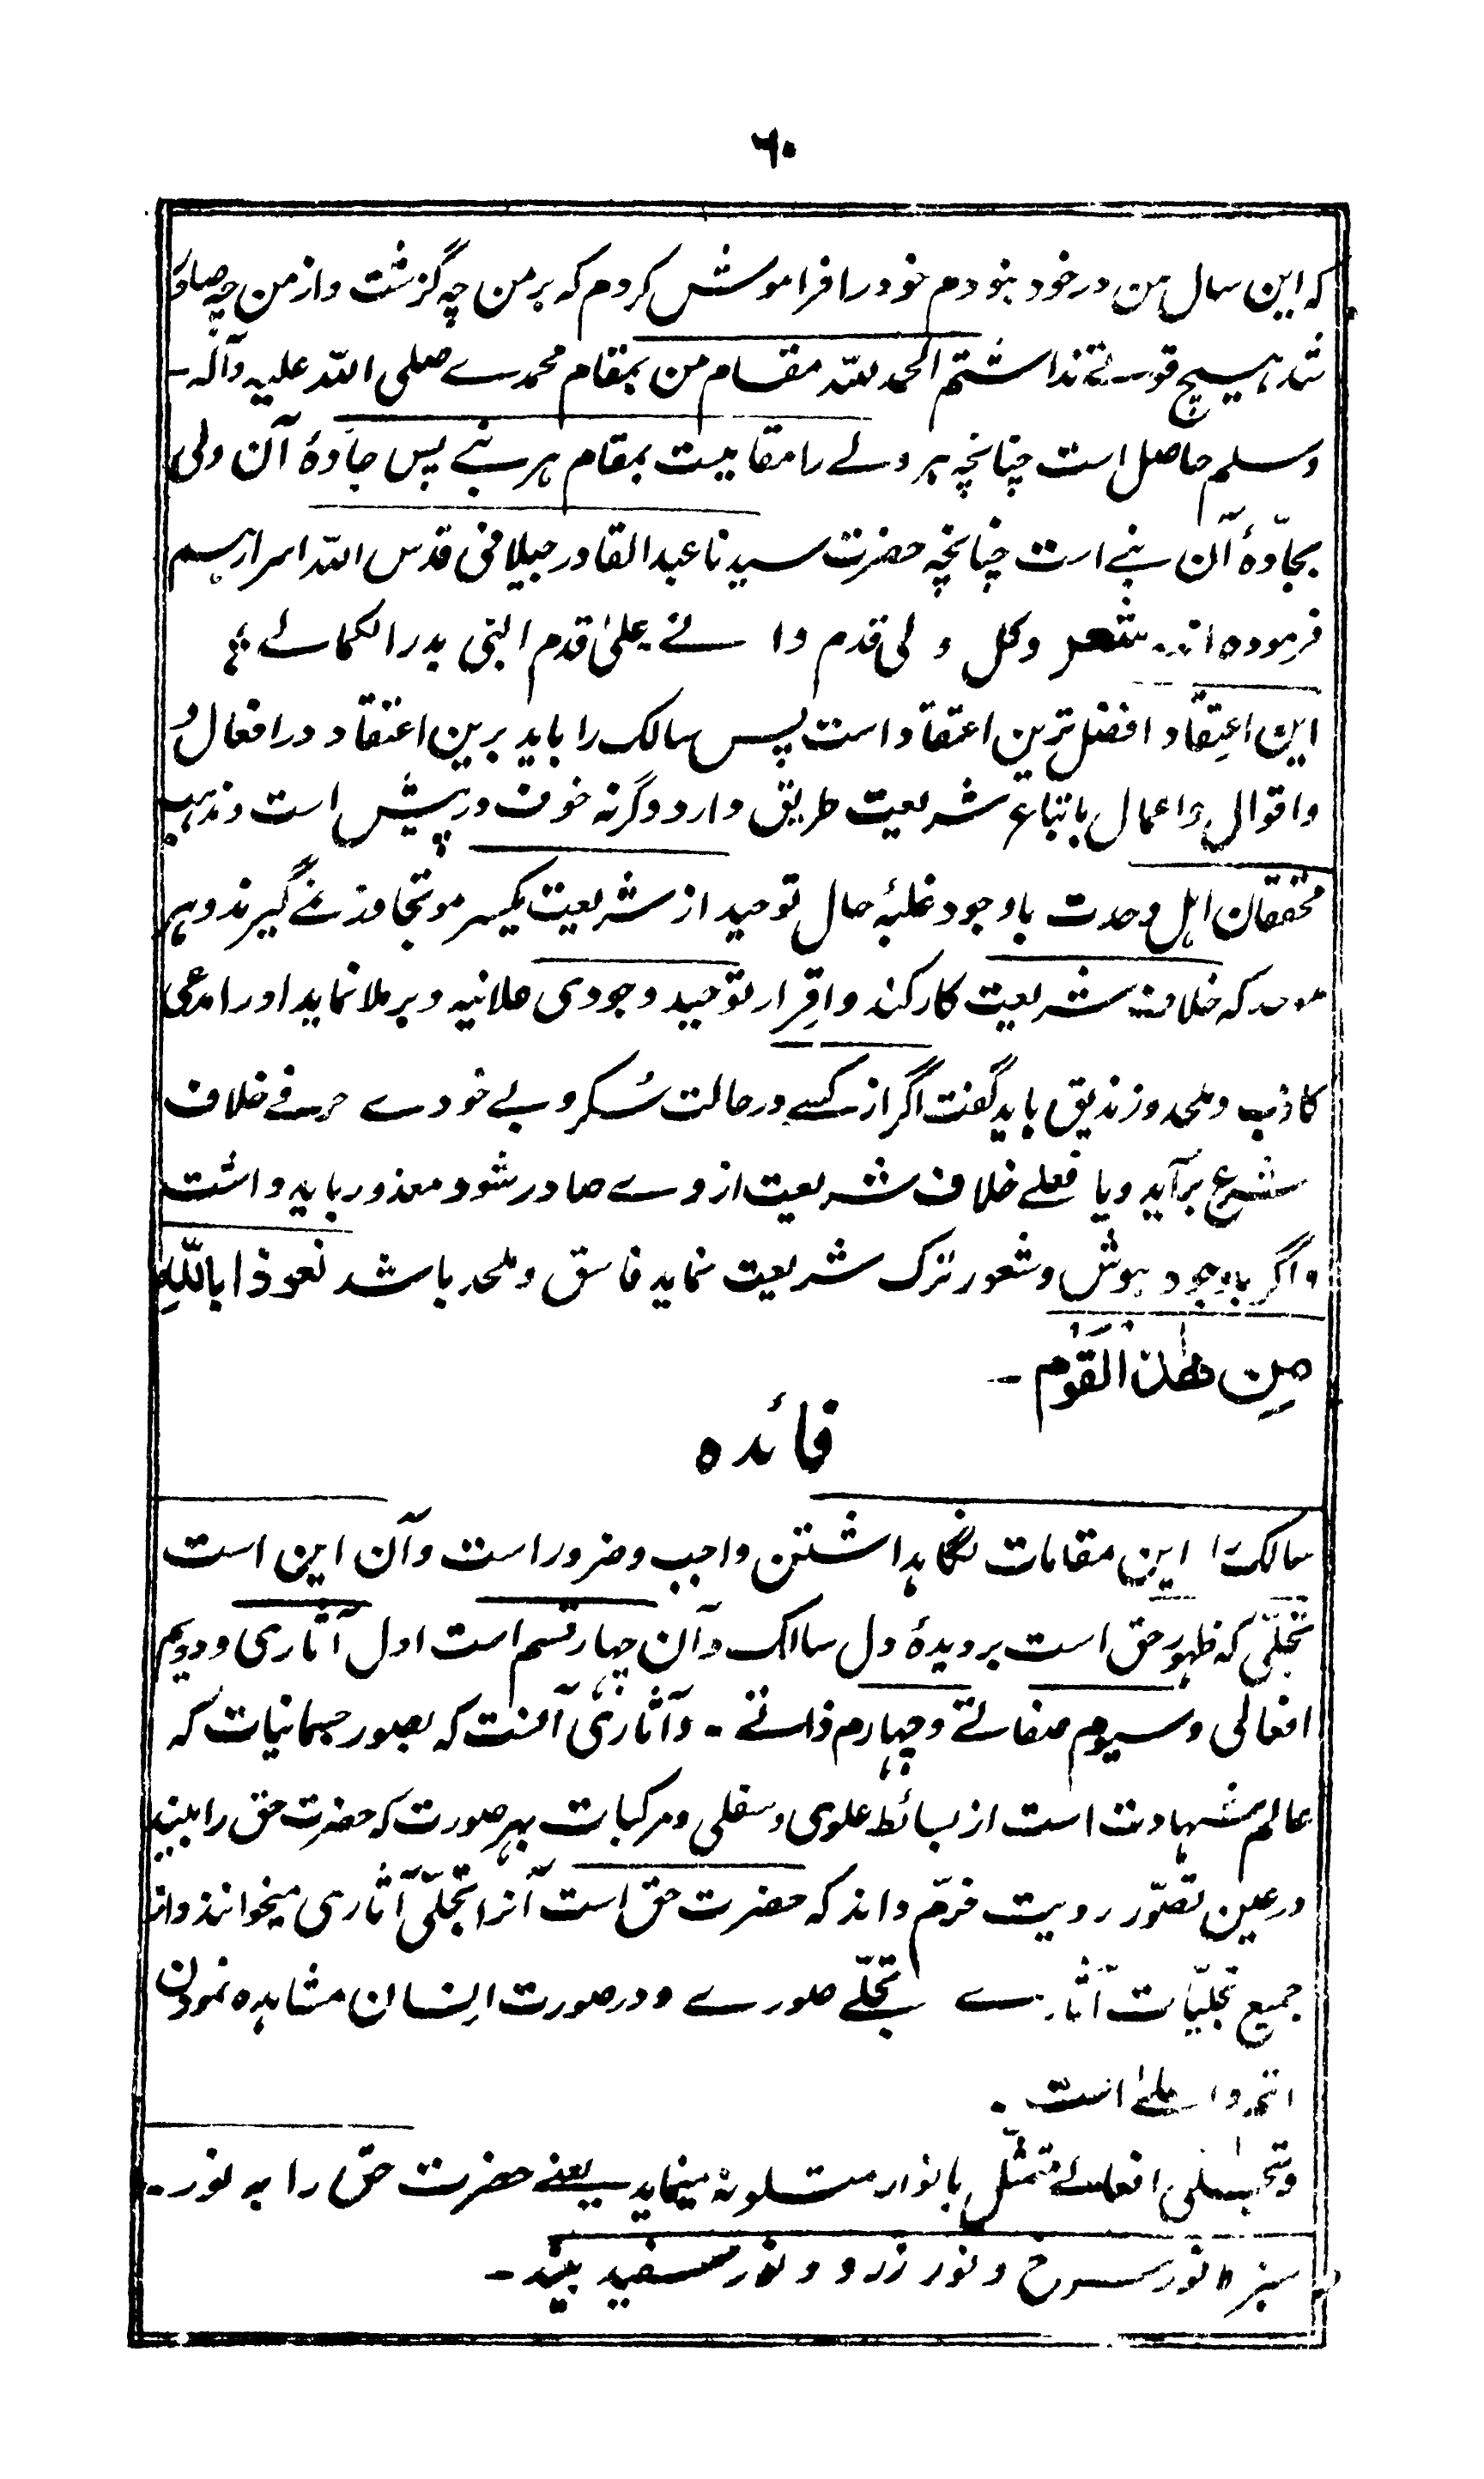 ٦٠
که این سال من در خود نبودم خود را فراموش کردم که بر من چه گزشت و از من چه صادر
شد هیچ قوتے نداشتم الحمد لله مقام من بمقام محمدے صلی الله علیه وآله۔
وسلم حاصل است چنانچه هر ولے را مقامیست بمقام هر نبے پس جادۂ آن ولی
بجادّۂ آن نبے است چنانچه حضرت سیدنا عبدالقادر جیلانی قدس الله اسرارهم
فرموده اند شعر وکل ولی قدم وانے علیٰ قدم النبی بدر الکمالے ؛
این اعتقاد افضل ترین اعتقاد است پس سالک را باید برین اعتقاد در افعال و
واقوال واعمال باتباع شریعت طریق دارد وگرنه خوف درپیش است ومذهب
محققان اهل وحدت باوجود غلبۂ حال توحید از شریعت یکسر مو تجاوز نمےگیرند وهر
موحد که خلاف شریعت کار کند واقرار توحید وجودی علانیه وبرملا نماید او را مدعی
کاذب وملحد وزندیق باید گفت اگر از کسے در حالت سُکر وبے خودے حرفے خلاف
شرع برآید ویا فعلے خلاف شریعت از وے صادر شود معذور باید داشت
واگر باوجود هوش وشعور ترک شریعت نماید فاسق وملحد باشد نعوذا بالله
مِن هٰذا القوم۔
فائده
سالک را این مقامات نگاهداشتن واجب وضرور است وآن این است
تجلّی که ظهور حق است بر دیدۂ دل سالک وآن چهار قسم است اول آثاری ودویم
افعالی وسیوم صفاتے وچهارم ذاتے۔ وآثاری آنست که بصور جسمانیات که
عالم شهادت است از بسائط علوی وسفلی ومرکبات بهر صورت که حضرت حق را بیند
در عین تصوّر رویت خرّم داند که حضرت حق است آنرا تجلّی آثاری میخوانند واز
جمیع تجلیّات آثارے تجلّے صورے ودر صورت انسان مشاهده نمودن
اتم واعلےٰ است۔
وتجلی افعالے متمثّل بانوار متلونه مینماید یعنے حضرت حق را به نور۔
سبز ونور سرخ ونور زرد ونور سفید بیند۔